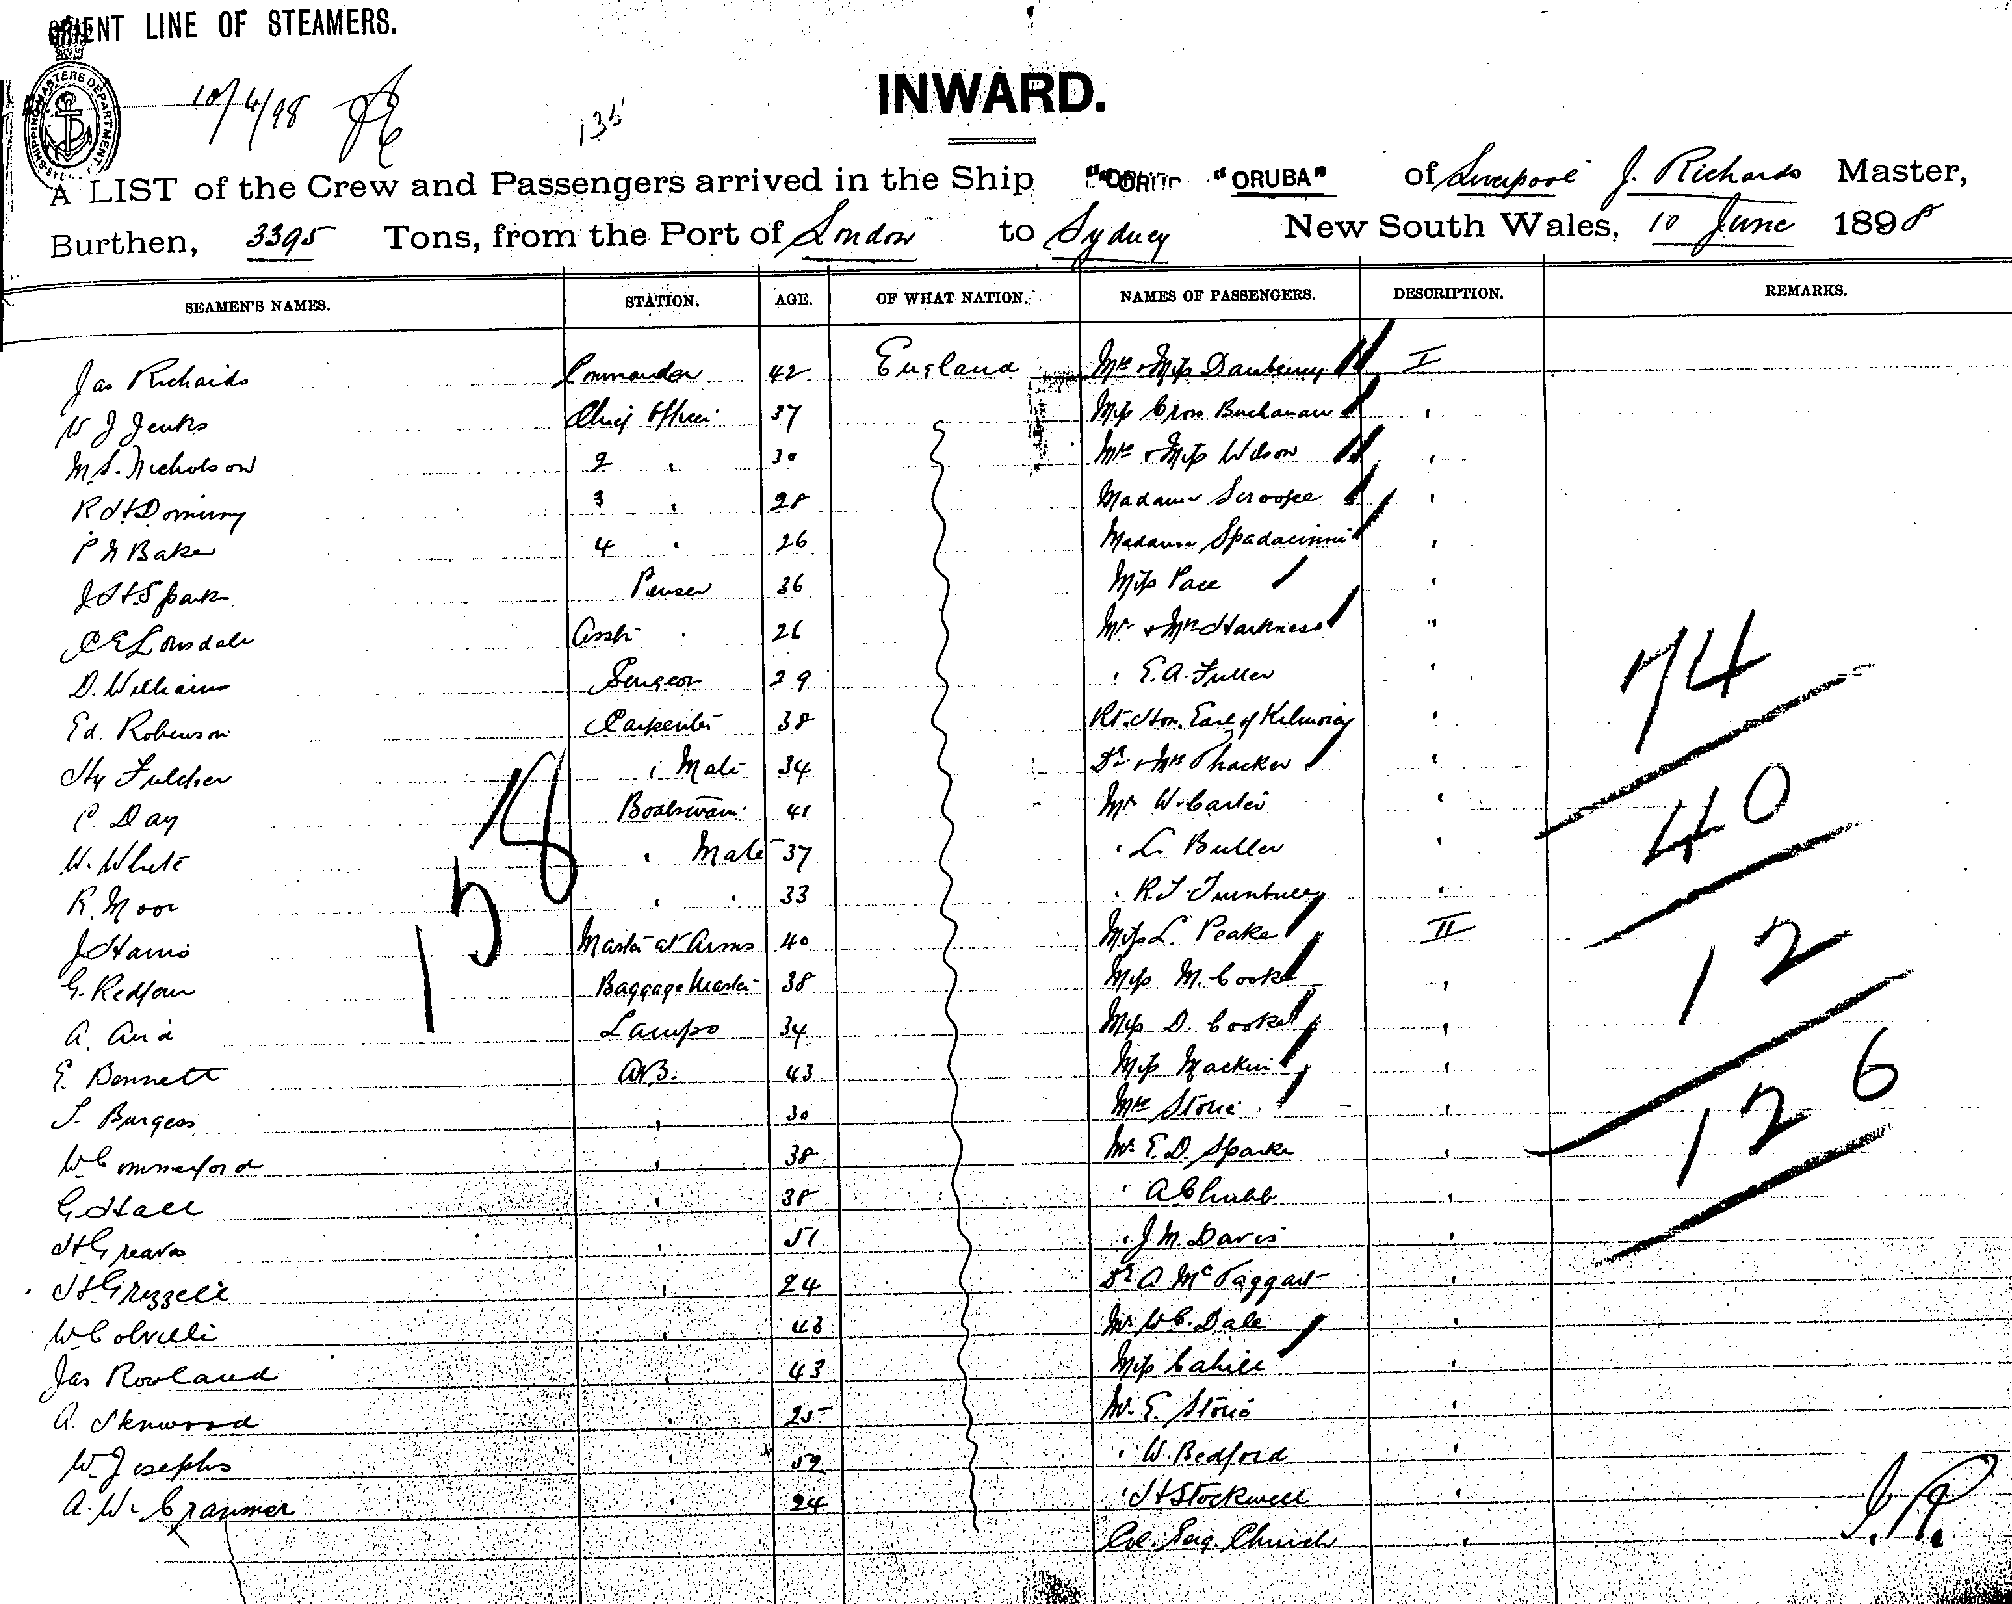 ORIENT LINE OF STEAMERS.
SHIPPING MASTERS DEPARTMENT
10/6/98
135
INWARD.
A LIST of the Crew and Passengers arrived in the Ship "ORUBA" of Liverpool J. Richards Master,
Burthen, 3395 Tons, from the Port of London to Sydney New South Wales, 10 June 1898
SEAMEN'S NAMES. STATION. AGE. OF WHAT NATION. NAMES OF PASSENGERS. DESCRIPTION. REMARKS.
Jas Richards Commander 42 England Mrs & Miss Dauberry I
W J Jenks Chief Officer 37 Miss Cross Buchanan "
M S. Nicholson 2 " 30 Mrs & Miss Wilson "
R H Dominy 3 " 28 Madame "
P N Baker 4 " 26 Madame Spadacinni "
J H Sparks Purser 36 Miss Pace "
C E Lonsdale Asst " 26 Mr & Mrs Harkness "
D. Williams Surgeon 29 " E. A. Fuller "
Ed. Robinson Carpenter 38 Rt. Hon. Earl of Kilmorey "
Hy Fulcher " Mate 34 Dr & Mrs Thacker "
C. Day Boatswain 41 Mr W. Carter "
W. White " Mate 37 " L. Butler "
R. Moor " " 33 " R T Turnbull "
J Harris Master at Arms 40 Miss L. Peake II
G. Redfour Baggage Master 38 Miss M. Cooke "
A. Lamps 34 Miss D. Cooke "
E. Bennett AB. 43 Miss Mackin "
T. Burgess " 30 Mrs Storie "
W Commerford " 38 Mr E. D. Sparke "
G Hall " 38 " A Chubb "
H Greaves " 51 " J. M. Davis "
H Grizzell " 24 Dr A McTaggart "
W Colville " 43 Mr W C. Dale "
Jas Rowland " 43 Miss Cahill "
A. Skenwood " 25 Mr. E. Storie "
W. Josephs " 59 " W. Bedford "
A. W. Cranmer " 24 " H Stockwell "
Col. Serg. Church "
74
40
12
126
J. R.